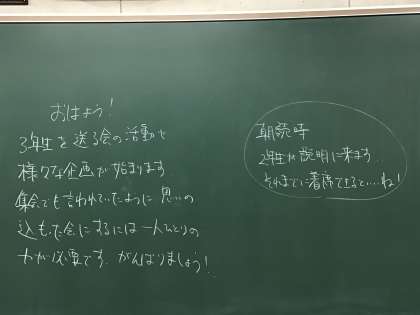 おはよう!
3年生を送る会の活動で
様々な企画が始まります
集会でも言われていたように思いの
込もった会にするには一人ひとりの
力が必要です。がんばりましょう!
朝読時
2年生が説明に来ます。
それまでに着席できると…ね!